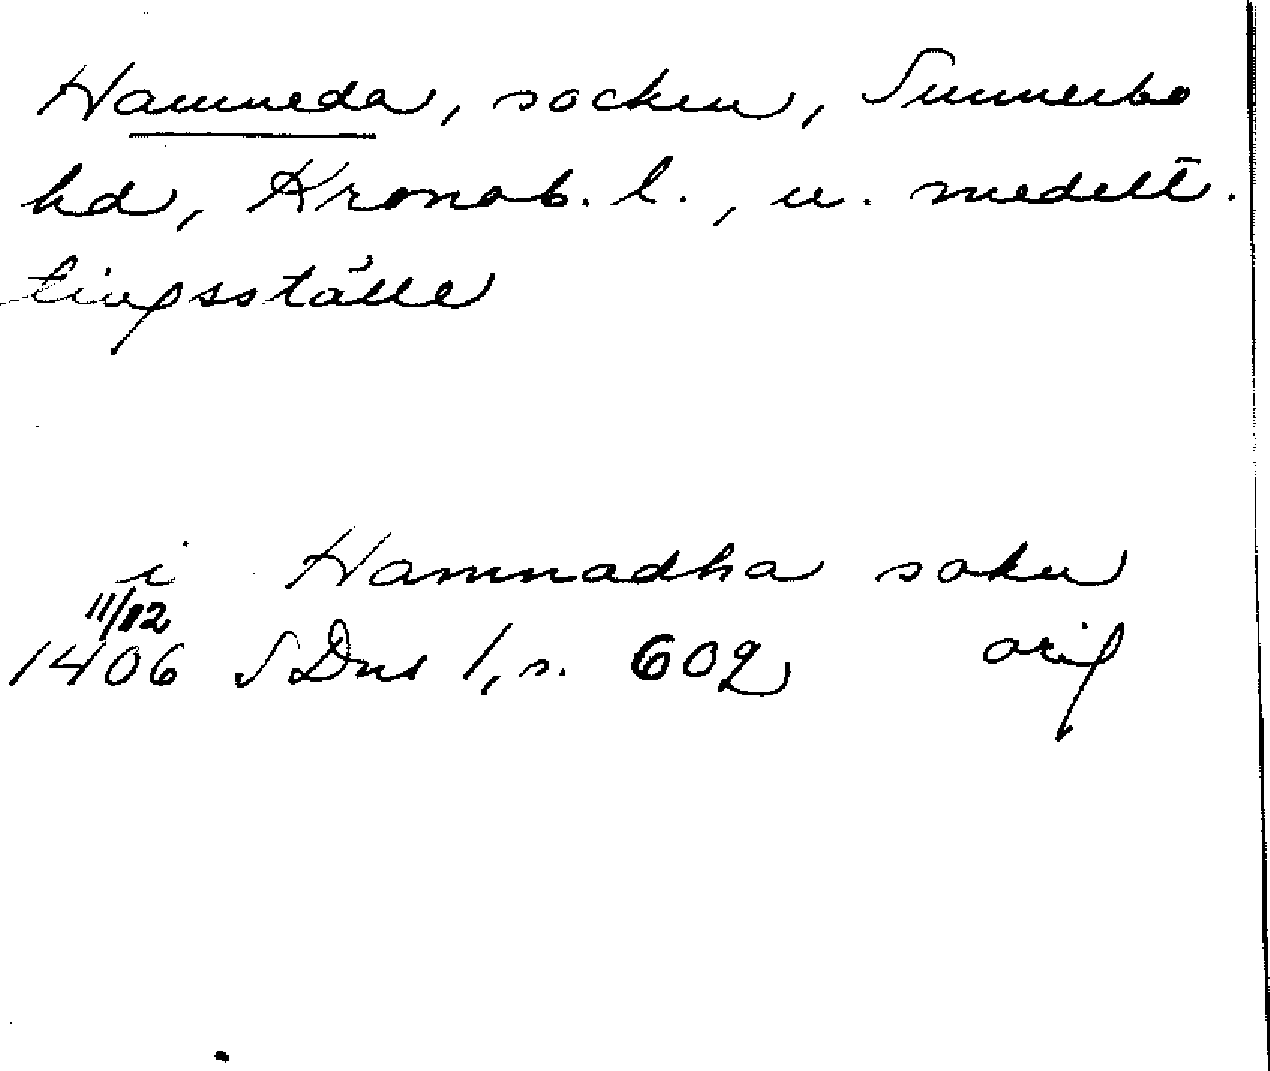 Hamneda, socken, Sunnerbo
hd, Kronob. l., u. medelt.
tingsställe
i Hamnadha sokn
11/12
1406 SDns 1, s. 602 orig